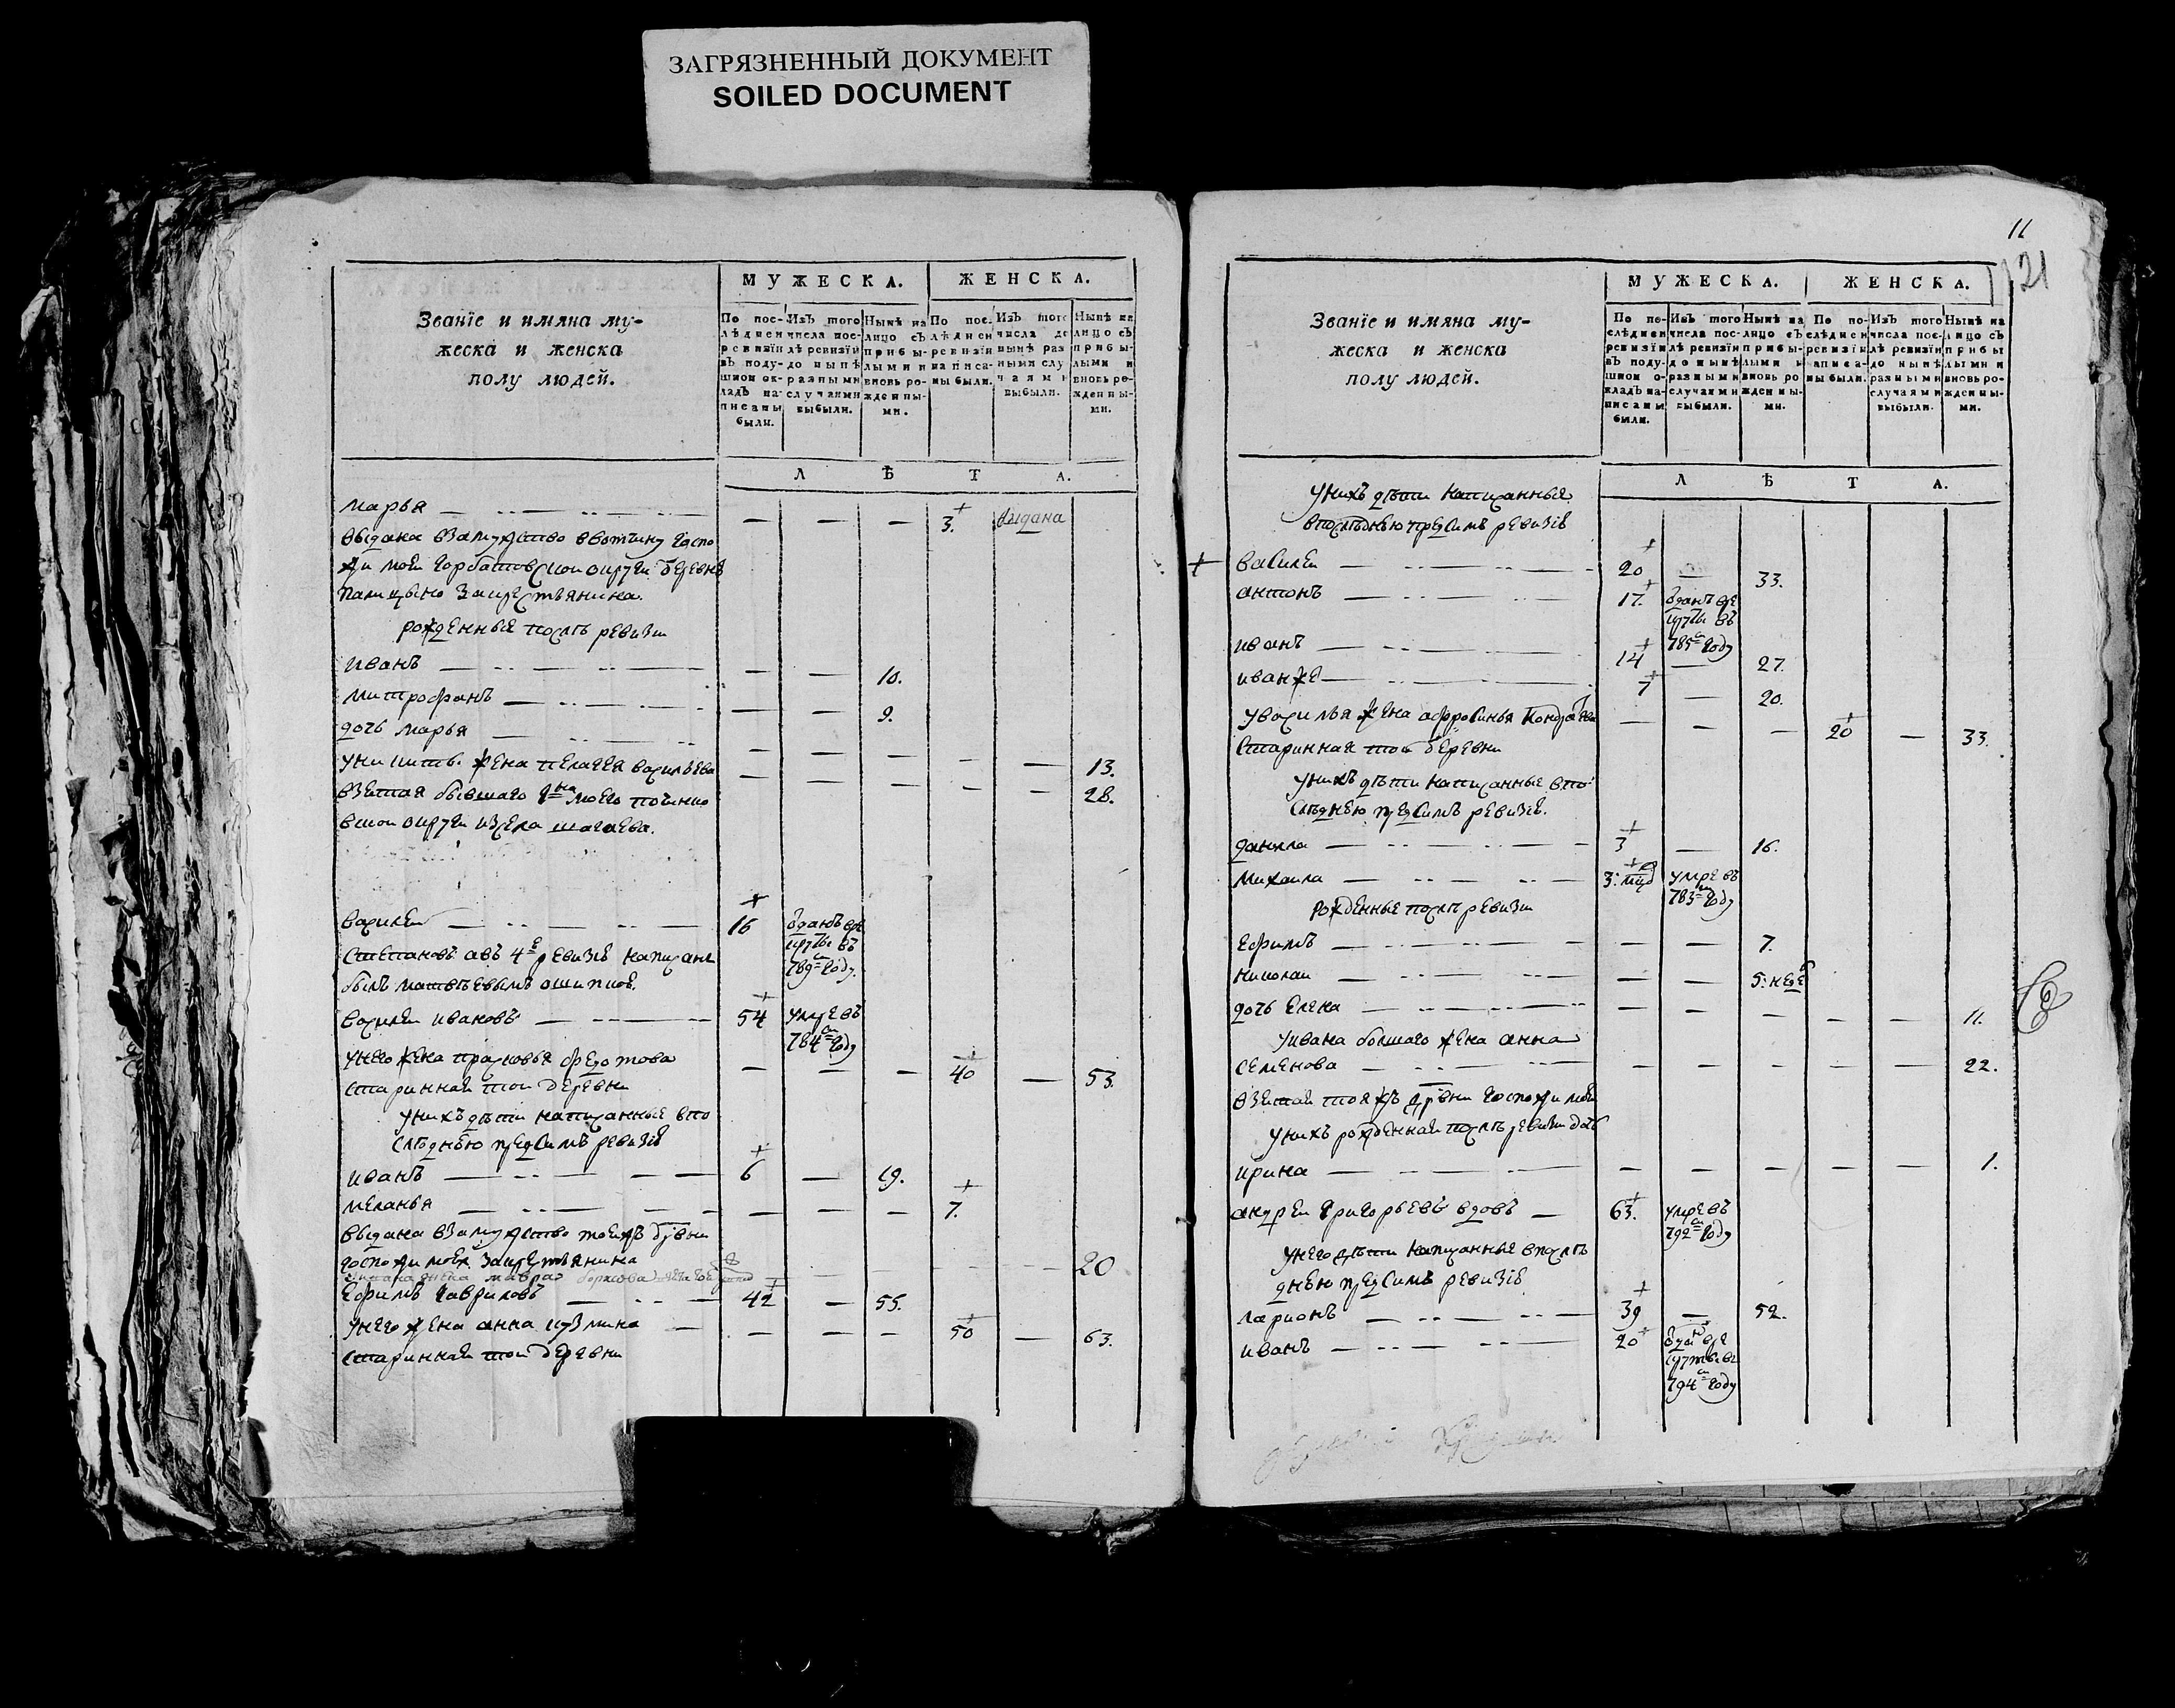 ЗАГРЯЗНЕННЫЙ ДОКУМЕНТ
SOILED DOCUMENT
Званїе и имяна му-
жеска и женска
полу людей.
МУЖЕСКА. ЖЕНСКА.
По пос-
лѣдней
ревизїи
въ поду-
шной ок-
ладъ на-
писаны
были.
Изъ того
числа пос-
лѣ ревизїи
до нынѣ
разными
случаями
выбыли.
Нынѣ на
лицо съ
прибы-
лыми и
вновь ро-
жденны-
ми.
По пос-
лѣдней
ревизїи
написа-
ны были.
Изъ того
числа до
нынѣ раз
ными слу
чаями
выбыли.
Нынѣ на
лицо съ
прибы-
лыми и
вновь ро-
жденны-
ми.
Л Ѣ Т А.
марья — — — — 3. выдана
выдана взамужство ввотчину госпо
жи моей горбатовской округи деревнѣ
закрестьянина.
рожденные послѣ ревизии
иванъ — — — 10.
митрофанъ — — — 9.
дочь марья — — — — — — 13.
жена пелагея васильева — — — — — 28.
взятая бывшаго моего
округи изсела шагаева.
василей — 16 вданъ вре
круты въ
789м году
степановъ авъ 4й ревизїе написанъ
былъ матвѣевымъ ошипкой.
василей ивановъ — 54 умре въ
784м году
унего жена прасковья федотова — — — 40 — 53.
стариннай той деревни
унихъ дѣти написанные впо
слѣднею предсимъ ревизїе
иванъ — 6 — 19.
меланья — — — — 7.
выдана взамужство тоежъ дрвни
госпожи моей закрестьянина
20
ефимъ гавриловъ — 42 — 55.
унего жена анна кузмина — — — — 50 — 63.
стариннай той деревни
11
21
Званїе и имяна му-
жеска и женска
полу людей.
МУЖЕСКА. ЖЕНСКА.
По по-
слѣдней
ревизїи
въ поду-
шной о-
кладъ на-
писаны
были.
Изъ того
числа пос-
лѣ ревизїи
до нынѣ
разными
случаями
выбыли.
Нынѣ на
лицо съ
прибы-
лыми и
вновь ро
жденны-
ми.
По по-
слѣдней
ревизїи
написа-
ны были.
Изъ того
числа пос-
лѣ ревизїи
до нынѣ
разными
случаями
выбыли.
Нынѣ на
лицо съ
прибы
лыми и
вновь ро-
жденны-
ми.
Л Ѣ Т А.
унихъ дѣти написанные
впослѣднею предсимъ ревизїе
василей — 20 — 33.
антонъ — 17. вданъ вре
круты въ
785м году
иванъ — 14 — 27.
иванже — 7 — 20.
увасилья жена афросинья кондратьева — — — 20 — 33.
старинная той деревни
унихъ дѣти написанные впо
слѣднею предсимъ ревизїе.
данила — 3 — 16.
михаила — 3: мцд умре въ
783м году
рожденные послѣ ревизии
ефимъ — — — 7.
николай — — — 5: недѣ
дочь елена — — — — — — 11.
уивана болшаго жена анна
семенова — — — — — — 22.
взятай тояжъ дрвни госпожи моей
унихъ рожденнай послѣ ревизии дочь
ирина — — — — — — 1.
андрей григорьевъ вдовъ — 63. умре въ
792м году
унего дѣти написанные впослѣ
днею предсимъ ревизїе
ларионъ — 39 — 52.
иванъ — 20 вданъ вре
круты въ
794м году